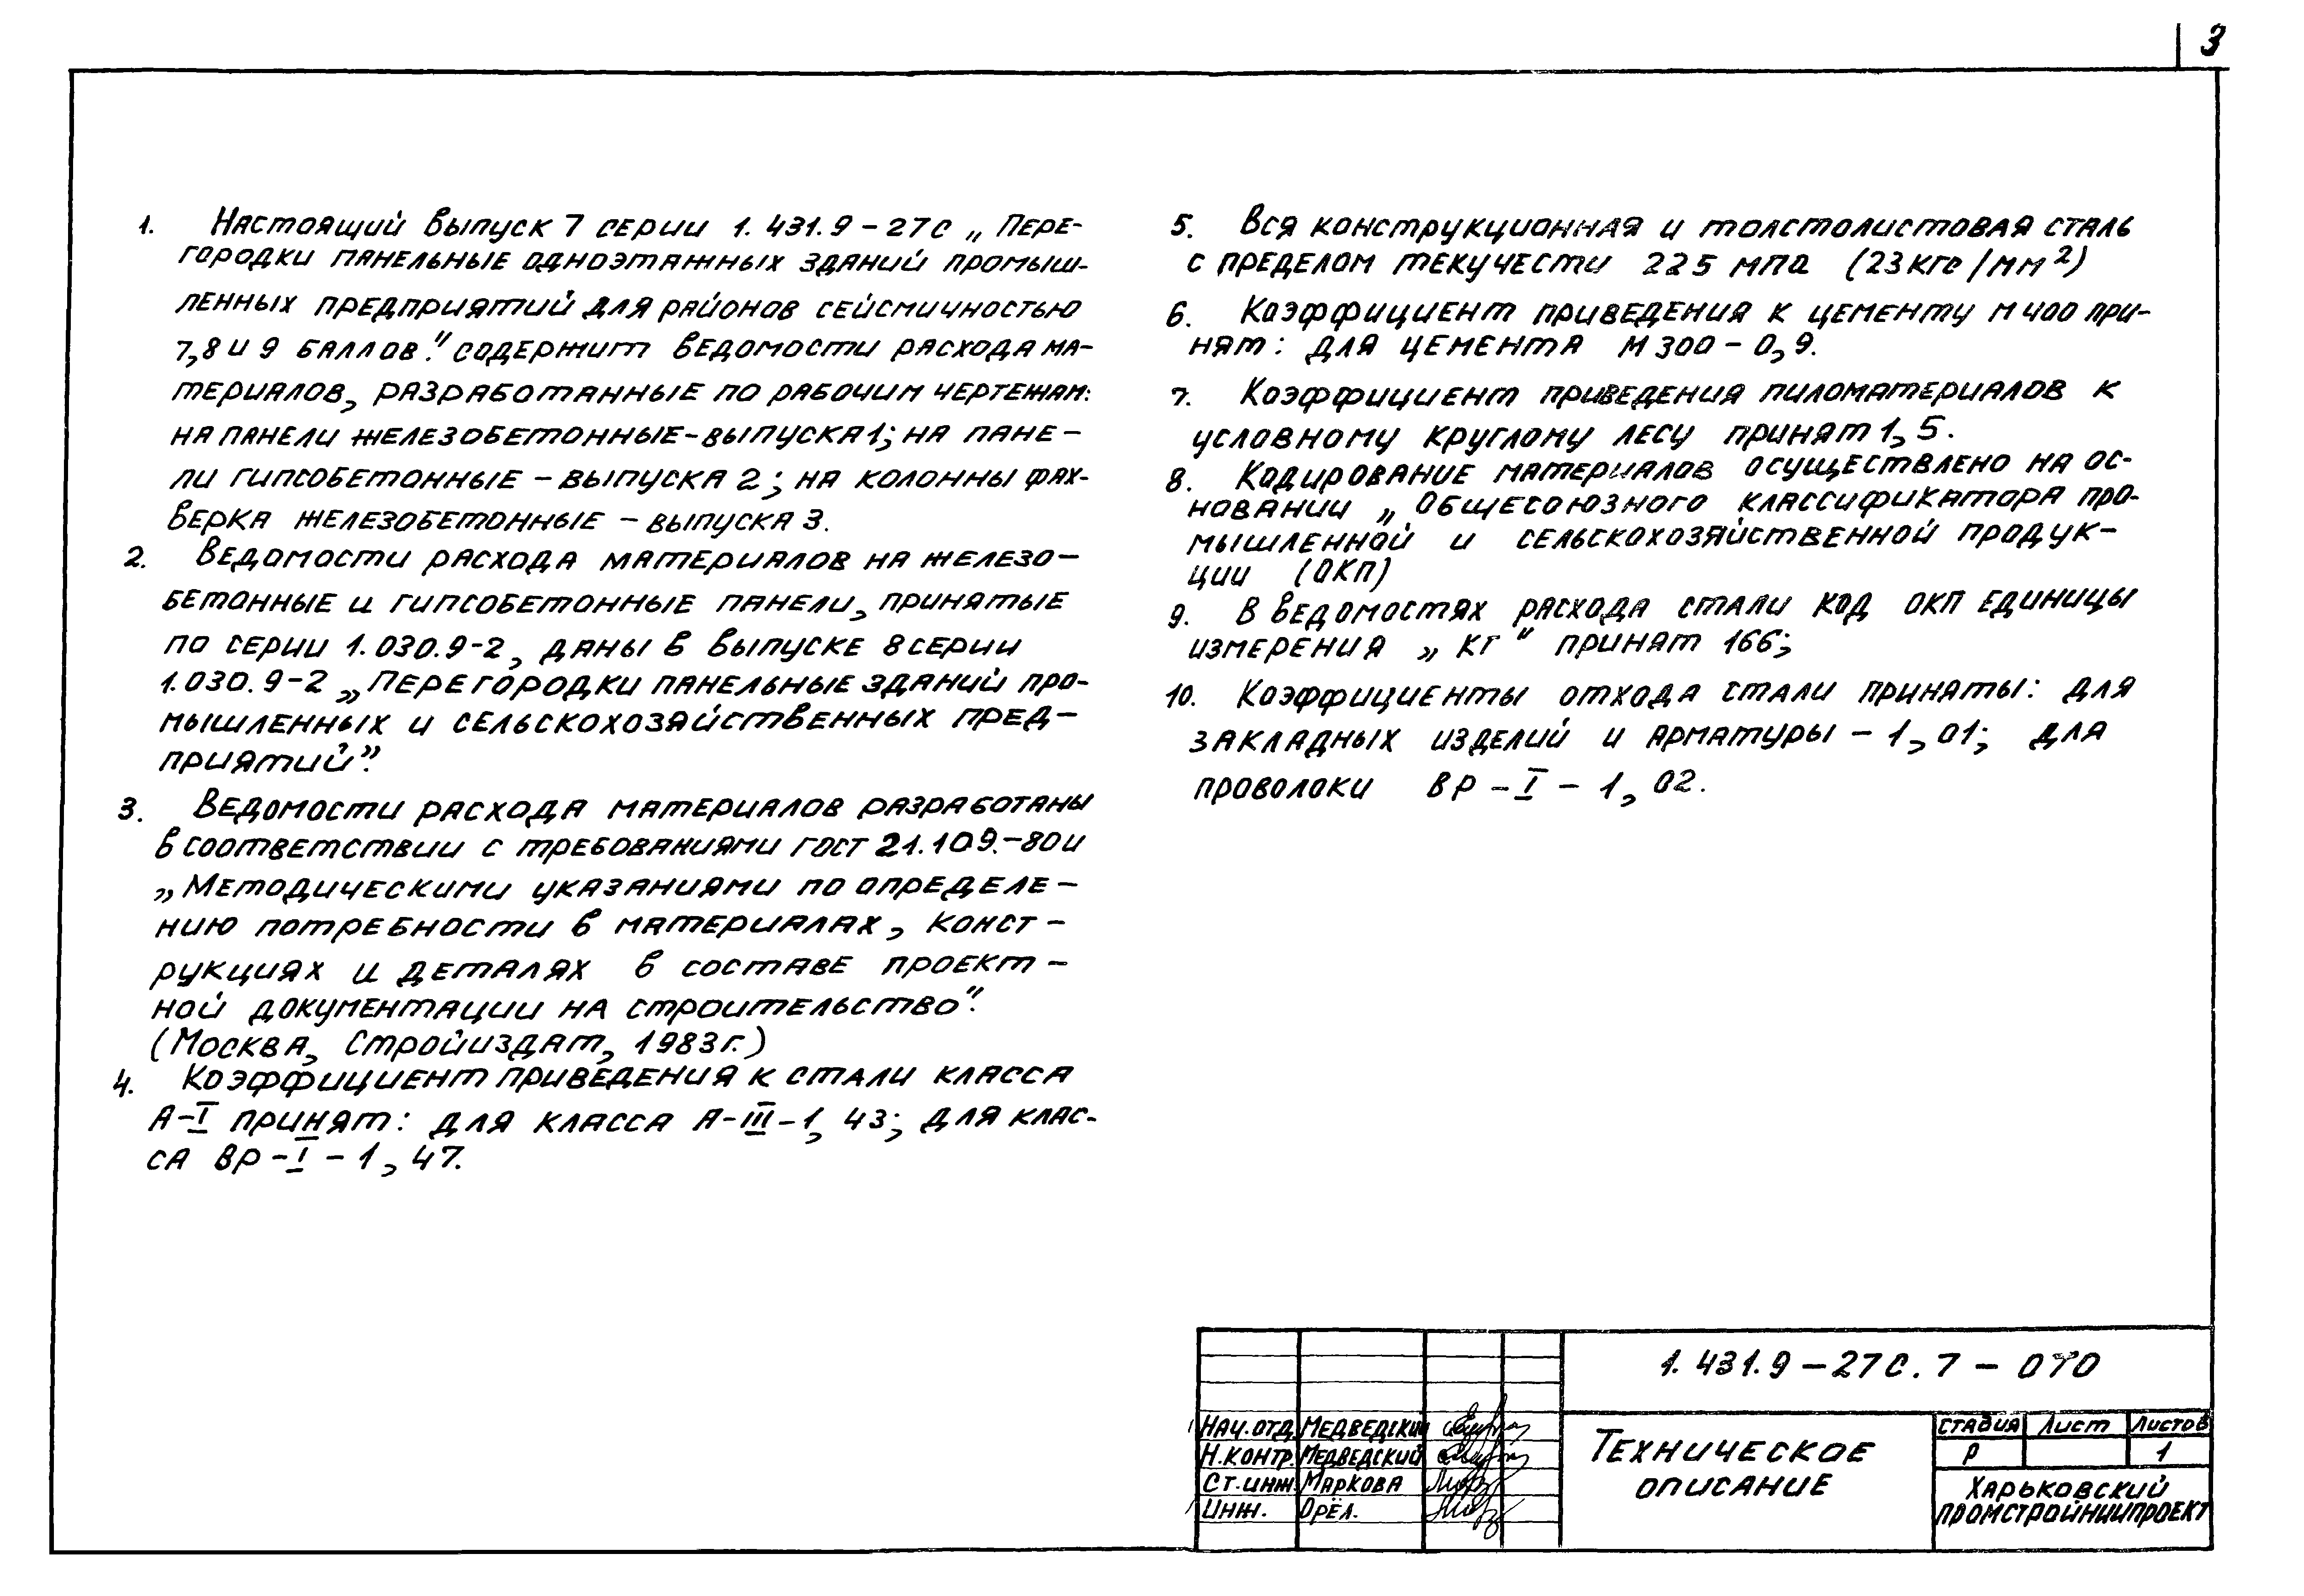 3
1. Настоящий выпуск 7 серии 1.431.9-27с „Пере-
городки панельные одноэтажных зданий промыш-
ленных предприятий для районов сейсмичностью
7,8 и 9 баллов." содержит ведомости расхода ма-
териалов, разработанные по рабочим чертежам:
на панели железобетонные-выпуска 1; на пане-
ли гипсобетонные - выпуска 2; на колонны фах-
верка железобетонные - выпуска 3.
2. Ведомости расхода материалов на железо-
бетонные и гипсобетонные панели, принятые
по серии 1.030.9-2, даны в выпуске 8 серии
1.030.9-2 „Перегородки панельные зданий про-
мышленных и сельскохозяйственных пред-
приятий".
3. Ведомости расхода материалов разработаны
в соответствии с требованиями ГОСТ 21.109.-80 и
„Методическими указаниями по определе-
нию потребности в материалах, конст-
рукциях и деталях в составе проект-
ной документации на строительство".
(Москва, Стройиздат, 1983г.)
4. Коэффициент приведения к стали класса
А-I принят: для класса А-III-1,43; для клас-
са Вр-I-1,47.
5. Вся конструкционная и толстолистовая сталь
с пределом текучести 225 МПа (23кгс/мм²)
6. Коэффициент приведения к цементу М400 при-
нят: для цемента М300-0,9.
7. Коэффициент приведения пиломатериалов к
условному круглому лесу принят 1,5.
8. Кодирование материалов осуществлено на ос-
новании „Общесоюзного классификатора про-
мышленной и сельскохозяйственной продук-
ции (ОКП)
9. В ведомостях расхода стали код ОКП единицы
измерения „кг" принят 166;
10. Коэффициенты отхода стали приняты: для
закладных изделий и арматуры - 1,01; для
проволоки Вр-I - 1,02.
1.431.9-27с.7-ОТО
Нач.отд. Медведский
Н.контр. Медведский
Ст.инж. Маркова
Инж. Орёл.
Техническое
описание
Стадия Лист Листов
Р 1
Харьковский
Промстройниипроект